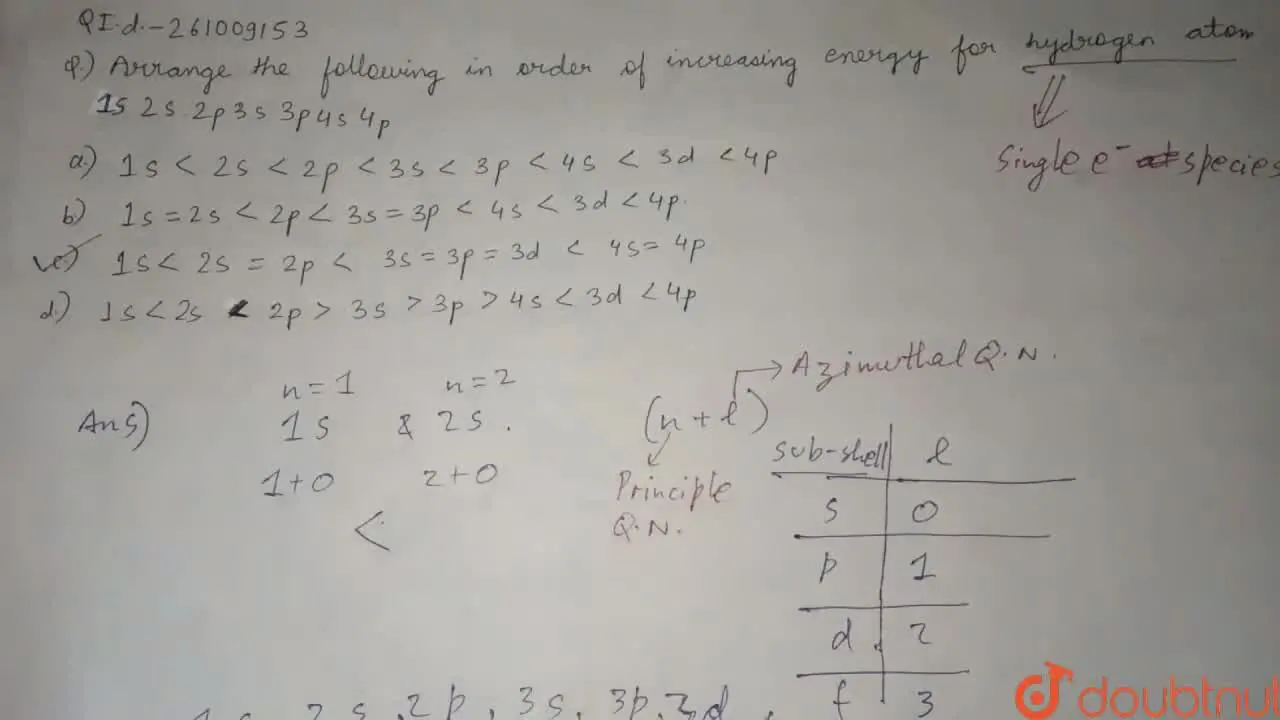 QI.d.-261009153
Q.) Arrange the following in order of increasing energy for hydrogen atom
1s 2s 2p 3s 3p 4s 4p
Single e⁻ species
a.) 1s < 2s < 2p < 3s < 3p < 4s < 3d < 4p
b) 1s = 2s < 2p < 3s = 3p < 4s < 3d < 4p.
c) 1s < 2s = 2p < 3s = 3p = 3d < 4s = 4p
d.) 1s < 2s < 2p > 3s > 3p > 4s < 3d < 4p
Azimuthal Q.N.
n=1 n=2
Ans) 1s & 2s. (n+l)
1+0 2+0
<
Principle
Q.N.
sub-shell l
s 0
p 1
d. 2
f 3
1s 2s, 2p, 3s, 3p, 3d,
doubtnut